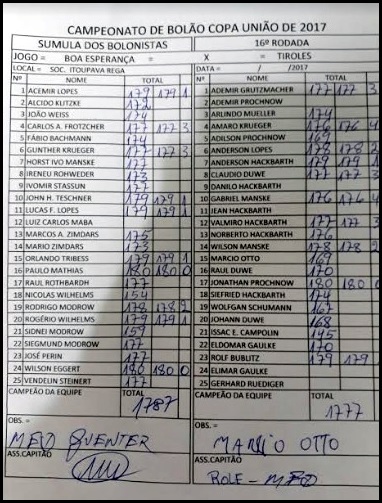 CAMPEONATO DE BOLÃO COPA UNIÃO DE 2017
SUMULA DOS BOLONISTAS 16ª RODADA
JOGO = BOA ESPERANÇA = X = TIROLES
LOCAL = SOC. ITOUPAVA REGA DATA = / /2017
Nº NOME TOTAL Nº NOME TOTAL
1 ACEMIR LOPES 179 179 1 1 ADEMIR GRUTZMACHER 177 177 3
2 ALCIDO KLITZKE 172 2 ADEMIR PROCHNOW
3 JOÃO WEISS 174 3 ARLINDO MUELLER 174
4 CARLOS A. FROTZCHER 177 177 3 4 AMARO KRUEGER 176 176 4
5 FÁBIO BACHMANN 174 5 ADILSON PROCHNOW 169
6 GUNTHER KRUEGER 177 177 3 6 ANDERSON LOPES 178 178 2
7 HORST IVO MANSKE 177 7 ANDERSON HACKBARTH 179 179 1
8 IRENEU ROHWEDER 173 8 CLAUDIO DUWE 177 177 3
9 IVOMIR STASSUN 177 9 DANILO HACKBARTH
10 JOHN H. TESCHNER 179 179 1 10 GABRIEL MANSKE 176 176 4
11 LUCAS F. LOPES 179 179 1 11 JEAN HACKBARTH
12 LUIZ CARLOS MABA 12 VALMIRO HACKBARTH 177 177 3
13 MARCOS A. ZIMDARS 175 13 NORBERTO HACKBARTH 176
14 MARIO ZIMDARS 173 14 WILSON MANSKE 178 178 2
15 ORLANDO TRIBESS 179 179 1 15 MARCIO OTTO 169
16 PAULO MATHIAS 180 180 0 16 RAUL DUWE 170
17 RAUL ROTHBARDH 177 17 JONATHAN PROCHNOW 180 180 0
18 NICOLAS WILHELMS 154 18 SIEFRIED HACKBARTH 174
19 RODRIGO MODROW 178 178 2 19 WOLFGAN SCHUMANN 167
20 ROGÉRIO WILHELMS 179 179 1 20 JOHANN DUWE 168
21 SIDNEI MODROW 159 21 ISSAC E. CAMPOLIN 145
22 SIEGMUND MODROW 177 22 ELDOMAR GAULKE 170
23 JOSÉ PERIN 177 23 ROLF BUBLITZ 179 179
24 WILSON EGGERT 180 180 0 24 ELIMAR GAULKE
25 VENDELIN STEINERT 177 25 GERHARD RUEDIGER
CAMPEÃO DA EQUIPE TOTAL CAMPEÃO DA EQUIPE TOTAL
1787 1777
OBS. = OBS. =
MARCIO OTTO
ASS.CAPITÃO ASS.CAPITÃO
ROLF -